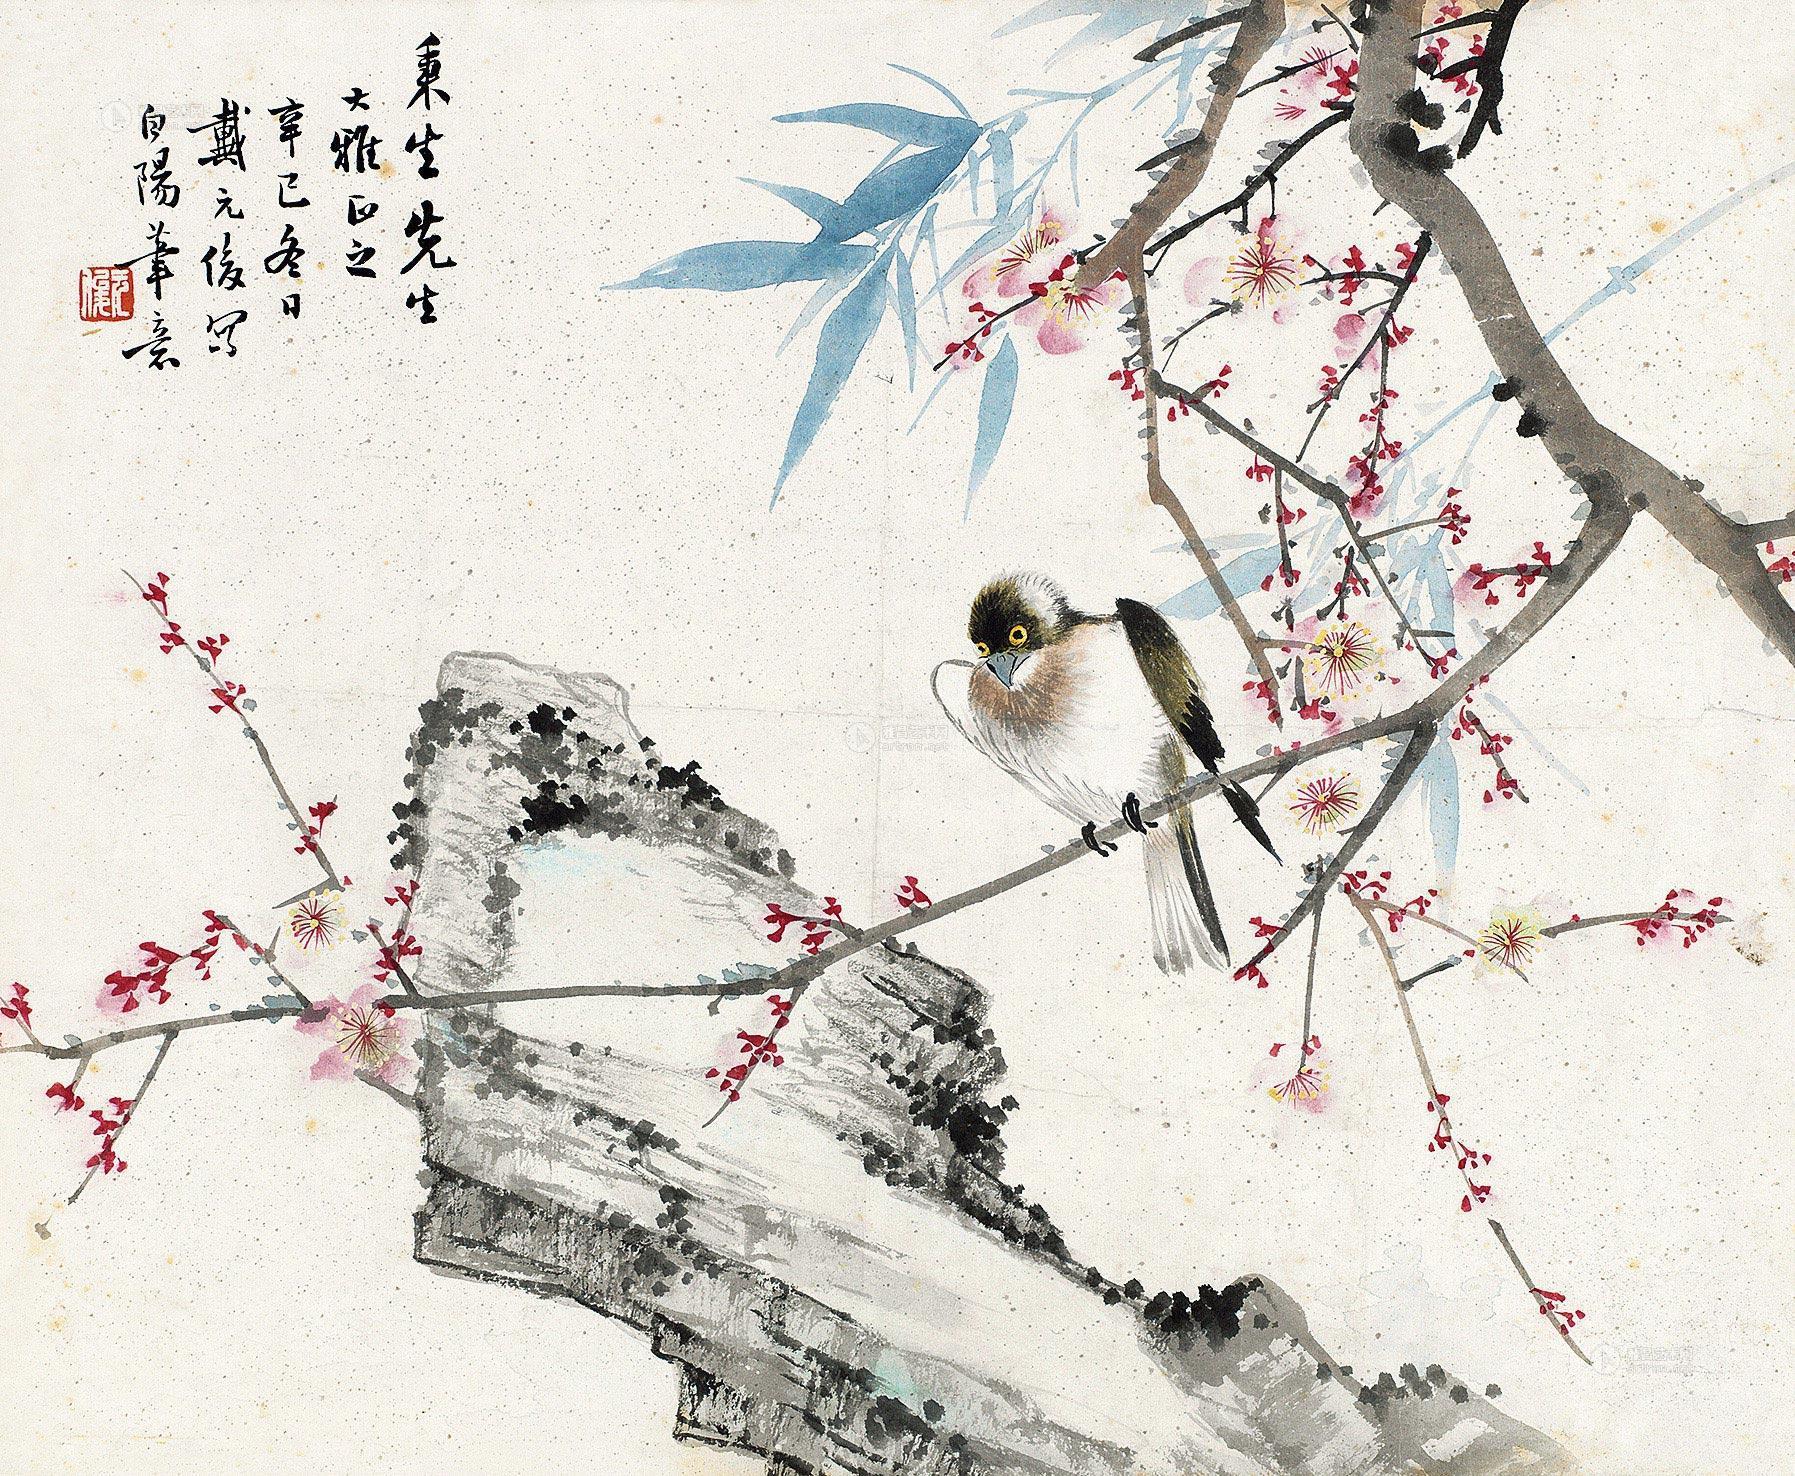 秉生先生
大雅正之
辛巳冬日
戴元俊写
白陽筆意